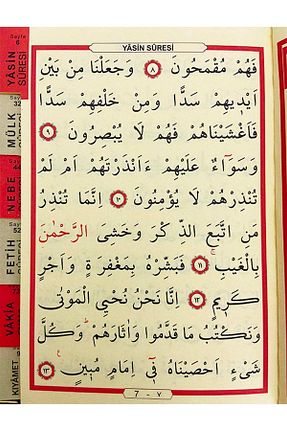 YÂSİN SÛRESİ
فَهُمْ مُقْمَحُونَ ﴿٨﴾ وَجَعَلْنَا مِنْ بَيْنِ
اَيْدٖيهِمْ سَدًّا وَمِنْ خَلْفِهِمْ سَدًّا
فَاَغْشَيْنَاهُمْ فَهُمْ لَا يُبْصِرُونَ ﴿٩﴾
وَسَوَٓاءٌ عَلَيْهِمْ ءَاَنْذَرْتَهُمْ اَمْ لَمْ
تُنْذِرْهُمْ لَا يُؤْمِنُونَ ﴿١٠﴾ اِنَّمَا تُنْذِرُ
مَنِ اتَّبَعَ الذِّكْرَ وَخَشِيَ الرَّحْمٰنَ
بِالْغَيْبِۚ ﴿١١﴾ فَبَشِّرْهُ بِمَغْفِرَةٍ وَاَجْرٍ
كَرٖيمٍ ﴿١٢﴾ اِنَّا نَحْنُ نُحْيِي الْمَوْتٰى
وَنَكْتُبُ مَا قَدَّمُوا وَاٰثَارَهُمْۜ وَكُلَّ
شَيْءٍ اَحْصَيْنَاهُ فٖٓي اِمَامٍ مُبٖينٍۚ ﴿١٣﴾
7 - ٧
Sayfa
6
YÂSİN
SÛRESİ
32
MÜLK
44
NEBE
52
FETİH
VÂKİA
KIYÂMET